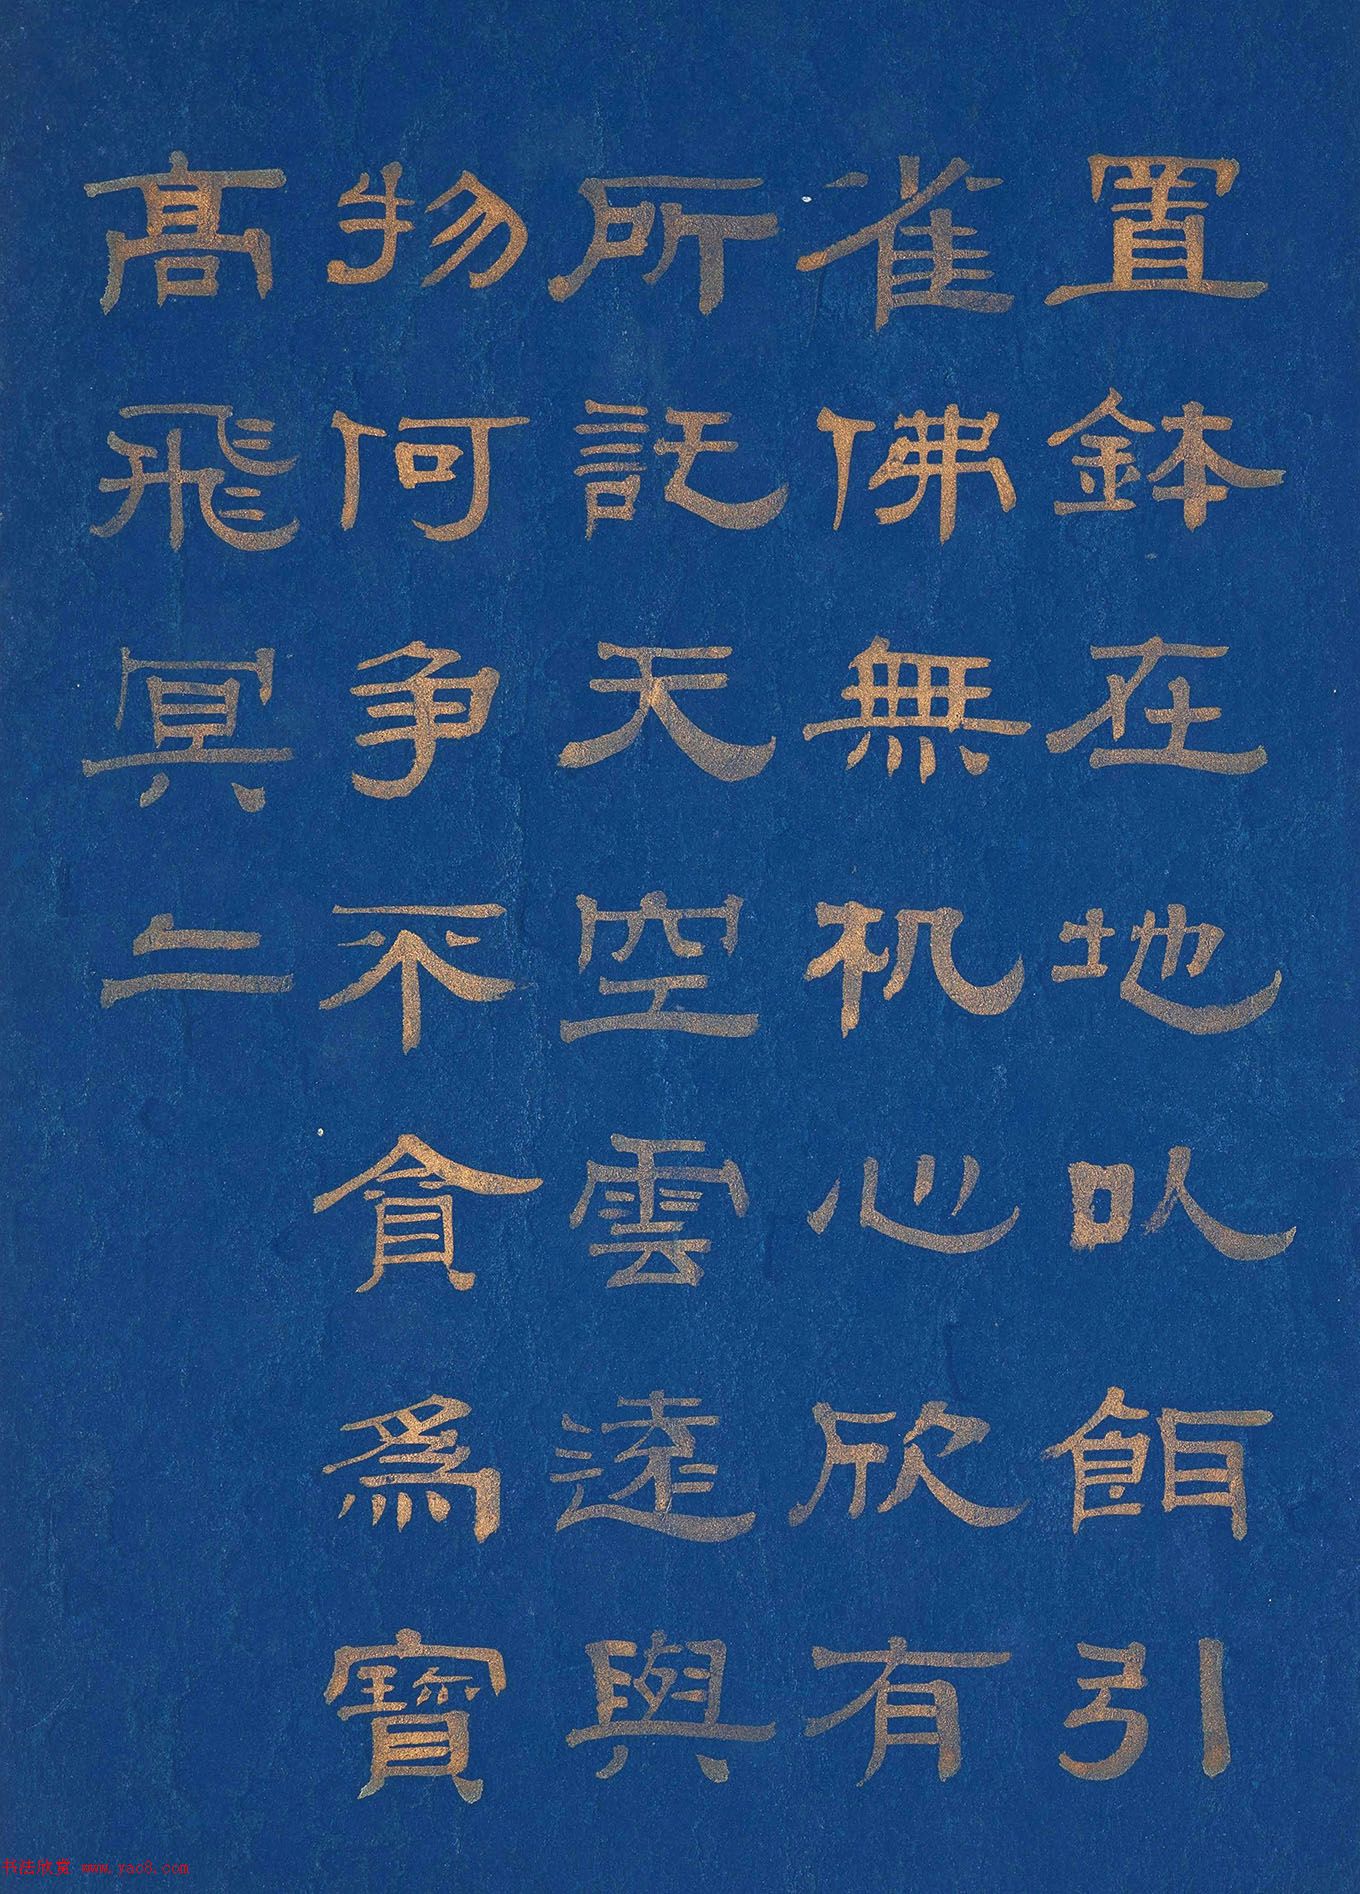 置鉢在地以飼引
雀佛無机心欣有
所託天空雲逵與
物何争不貪爲寶
高飛冥二
书法欣赏 www.yac8.com